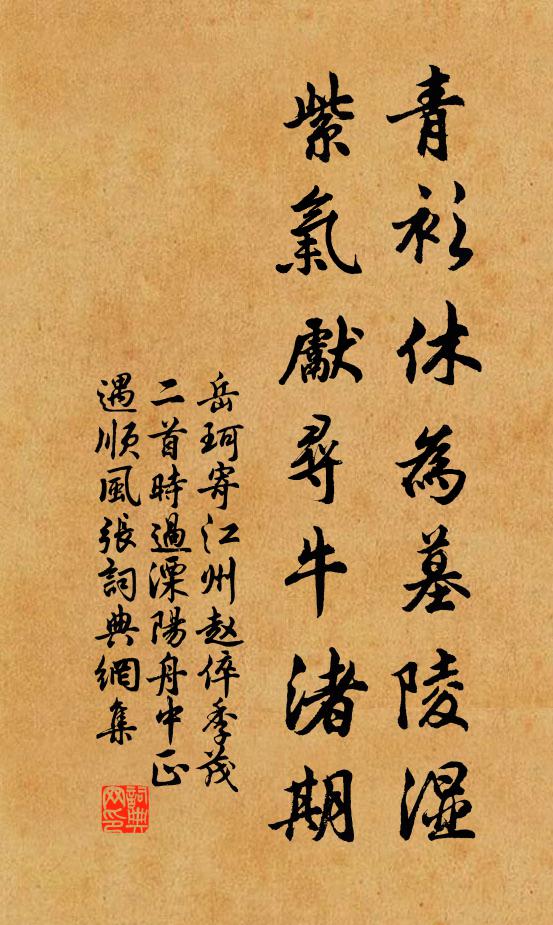 青衫休為墓陵濕
紫氣獻尋牛渚期
岳珂寄江州赵倅季茂
二首時過溧陽舟中正
遇順風張詞典網集
詞典网印